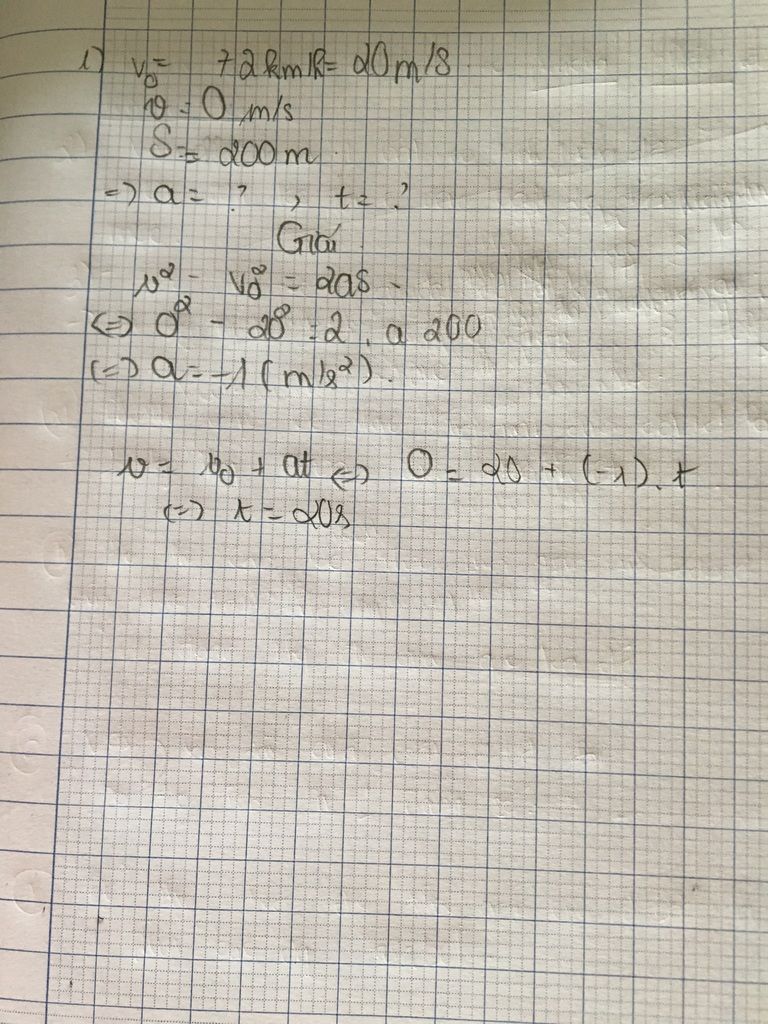 1) v₀ = 72km/h = 20m/s
v = 0 m/s
S = 200m
=> a = ? , t = ?
Giải
v² - v₀² = 2as
<=> 0² - 20² = 2 . a 200
<=> a = -1 (m/s²).
v = v₀ + at <=> 0 = 20 + (-1).t
<=> t = 20s